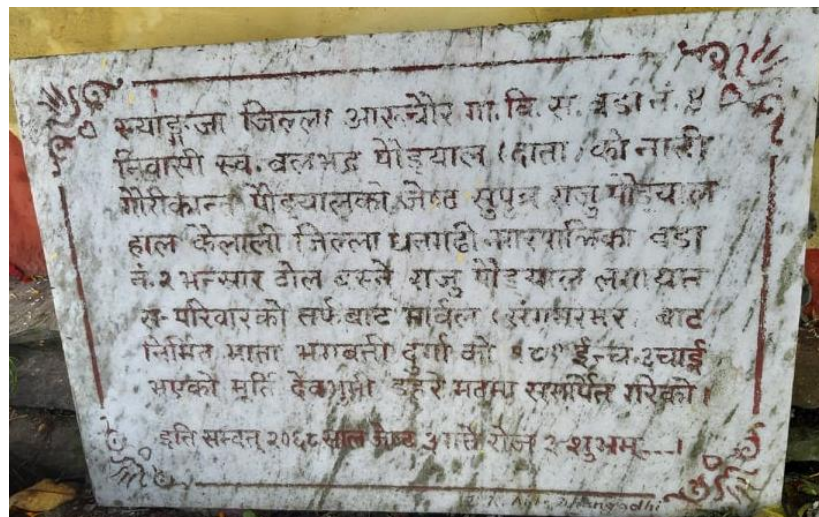 स्याङ्गजा जिल्ला आरुचौर गा. वि. स. वडा नं. ५
निवासी स्व. बलभद्र पौड्याल (दाता) को नाती
गौरीकान्त पौड्यालको जेष्ट सुपुत्र राजु पौड्याल
हाल कैलाली जिल्ला धनगढी नगरपालिका वडा
नं. २ भन्सार टोल बस्ने राजु पौड्याल लगायत
स-परिवारको तर्फ बाट मार्वल (संगमरमर) बाट
निर्मित माता भगवती दुर्गा को ईन्च उचाई
भएको मूर्ति देवभुमी डहरे मठमा समर्पित गरेको।
इति सम्वत् २०६८ साल जेष्ट ३ गते रोज ३ शुभम्---।